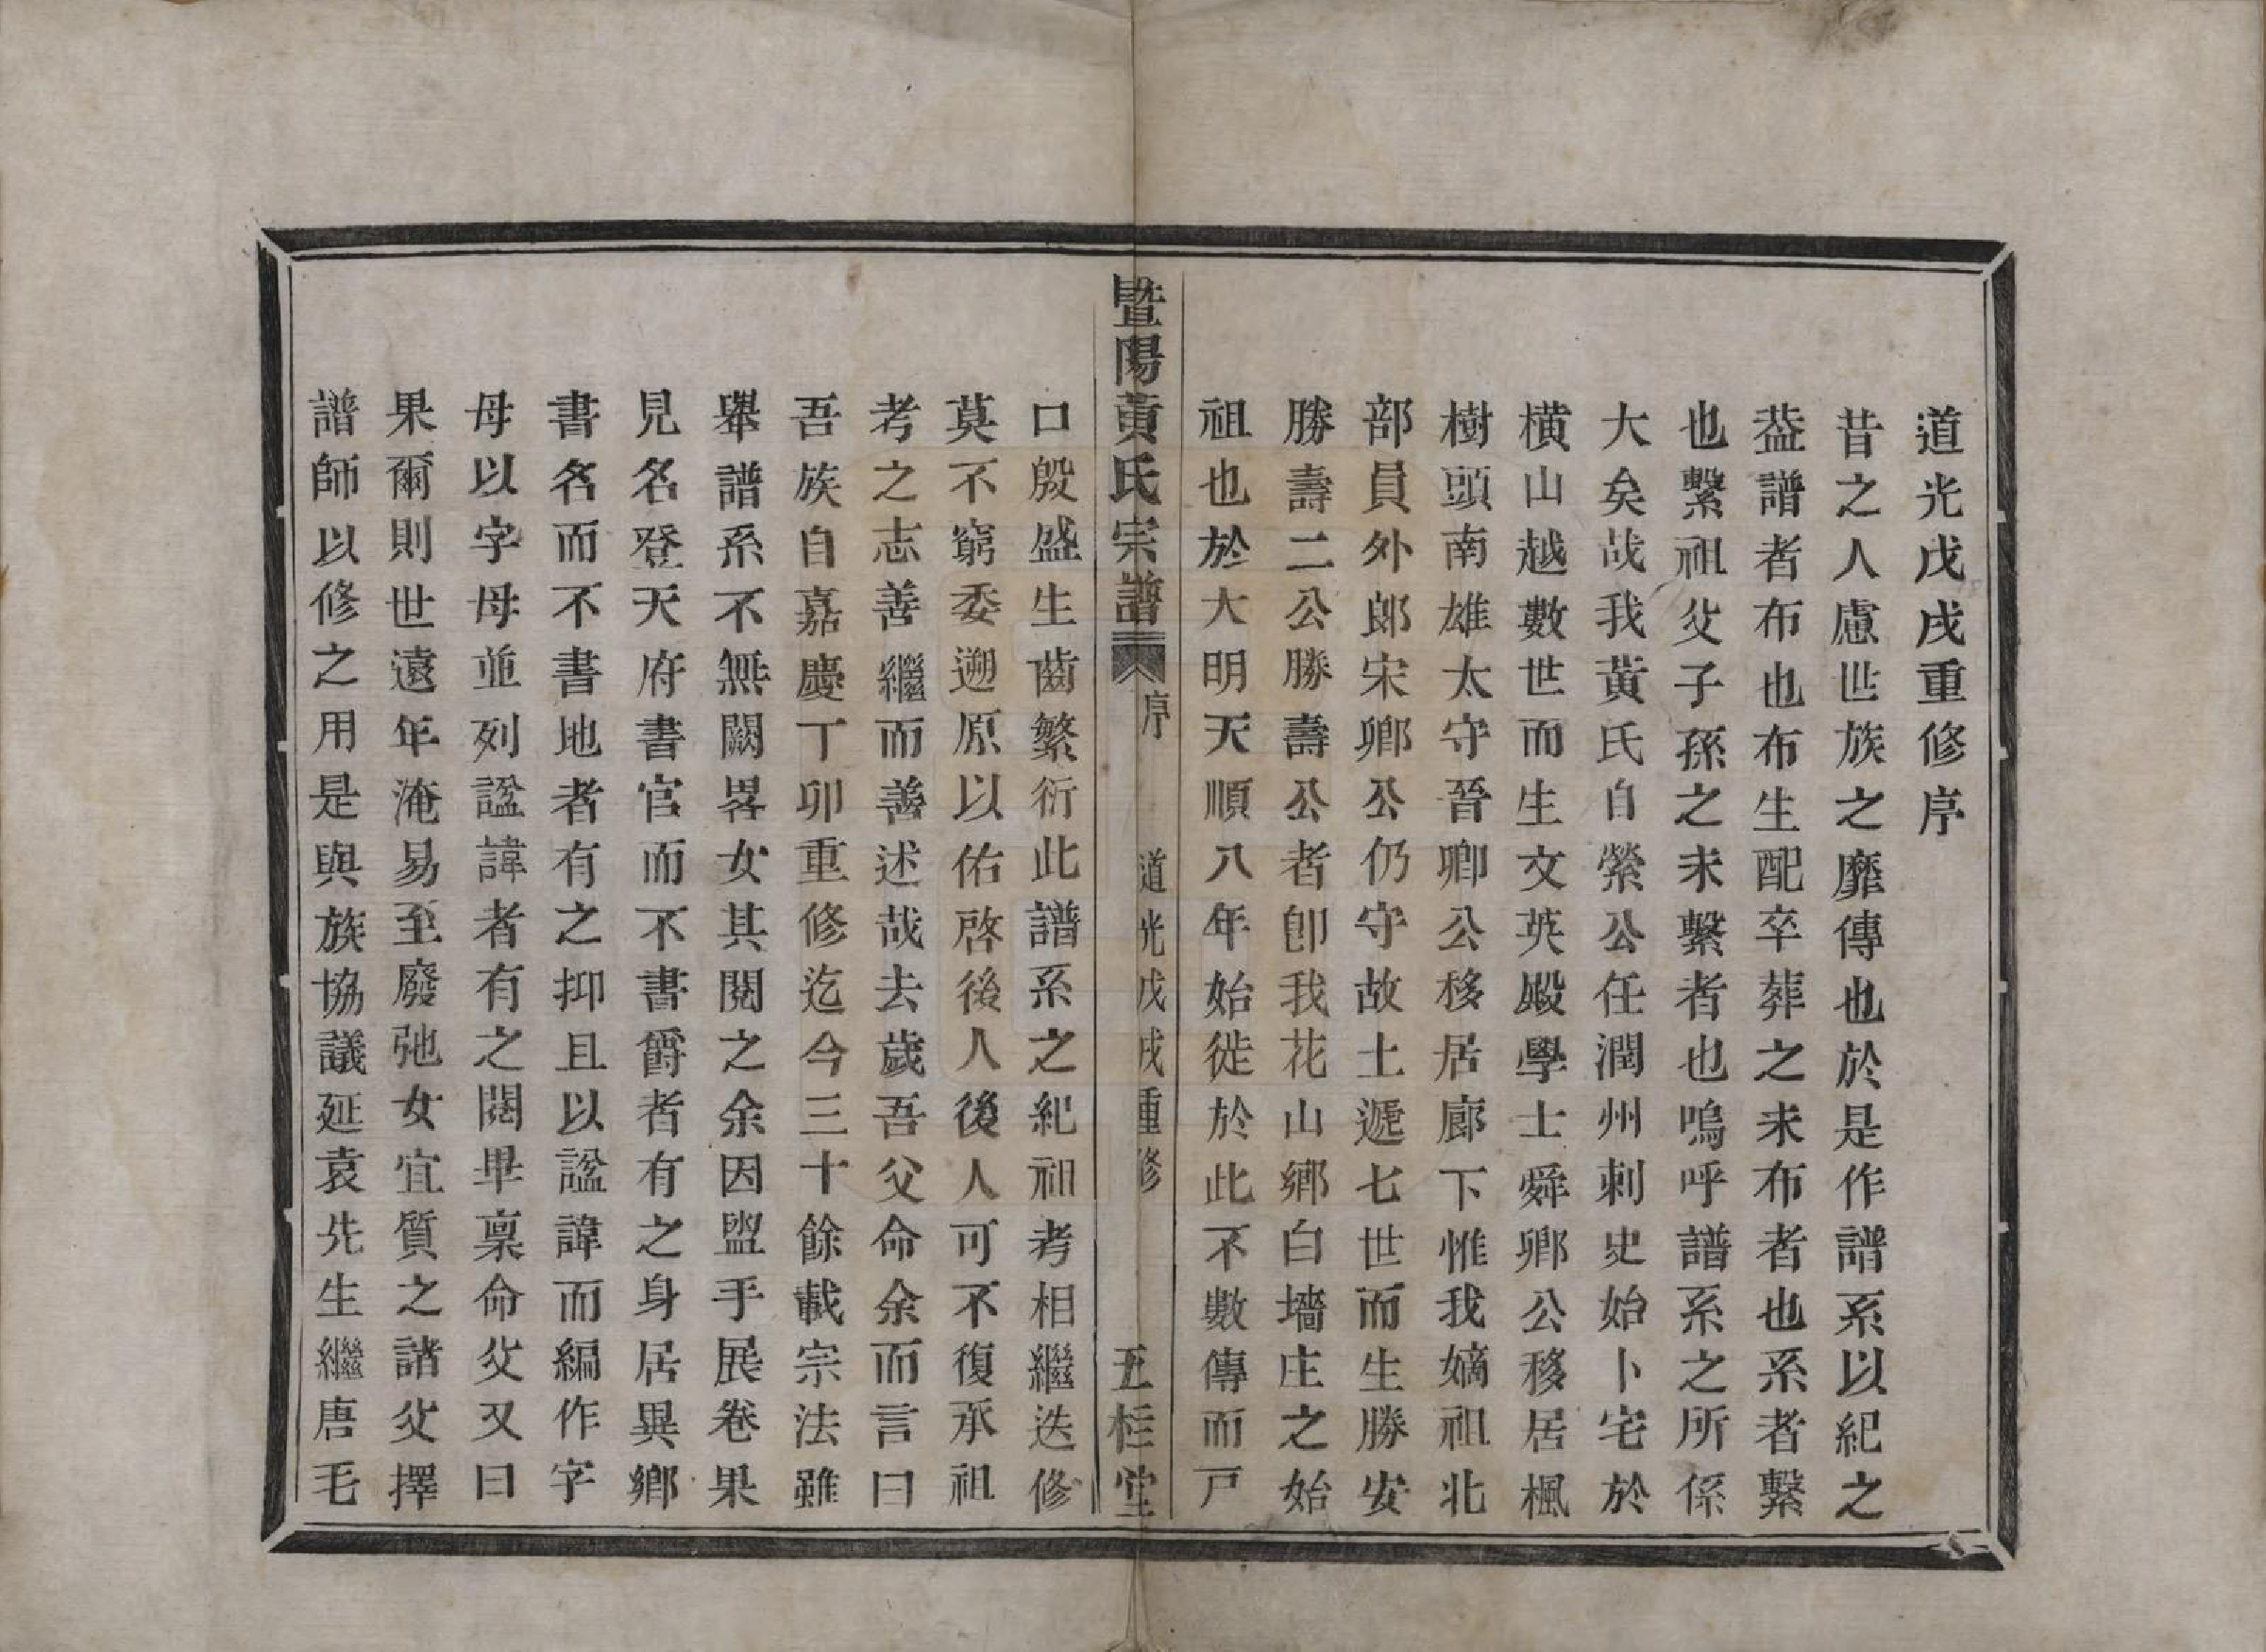 道光戊戌重修序
昔之人慮世族之靡傳也於是作譜系以紀之
葢譜者布也布生配卒葬之未布者也系者繫
也繫祖父子孫之未繫者也嗚呼譜系之所係
大矣哉我黃氏自縈公任潤州刺史始卜宅於
橫山越數世而生文英殿學士舜卿公移居楓
樹頭南雄太守晉卿公移居廊下惟我嫡祖北
部員外郎宋卿公仍守故土遞七世而生勝安
勝壽二公勝壽公者卽我花山鄉白墻庄之始
祖也於大明天順八年始徙於此不數傳而戸
暨陽黃氏宗譜 序 道光戊戌重修 五桂堂
口殷盛生齒繁衍此譜系之紀祖考相繼迭修
莫不窮委遡原以佑啓後人後人可不復承祖
考之志善繼而善述哉去歲吾父命余而言曰
吾族自嘉慶丁卯重修迄今三十餘載宗法雖
舉譜系不無闕畧女其閱之余因盥手展卷果
見名登天府書官而不書爵者有之身居異鄉
書名而不書地者有之抑且以諡諱而編作字
母以字母並列諡諱者有之閱畢稟命父又曰
果爾則世遠年淹易至廢弛女宜質之諸父擇
譜師以修之用是與族協議延袁先生繼唐毛